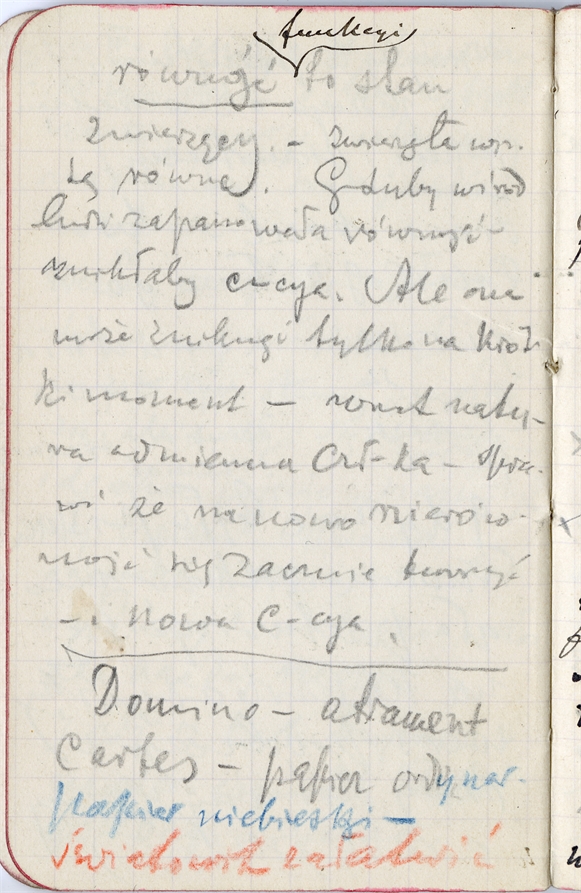 funkcyi
równość to stan
zwierzęcy. – zwierzęta wsz.
są równe. Gdyby wśród
ludzi zapanowała równość –
znikłaby c-cya. Ale ona
może zniknąć tylko na krót
ki moment – wnet natu-
ra odmienna Czł-ka – spra-
wi że na nowo nierów-
ność się zacznie tworzyć
– i nowa C-cya.
Domino – atrament
Cartes – papier ordynar-
papier niebieski –
Światowit załatwić